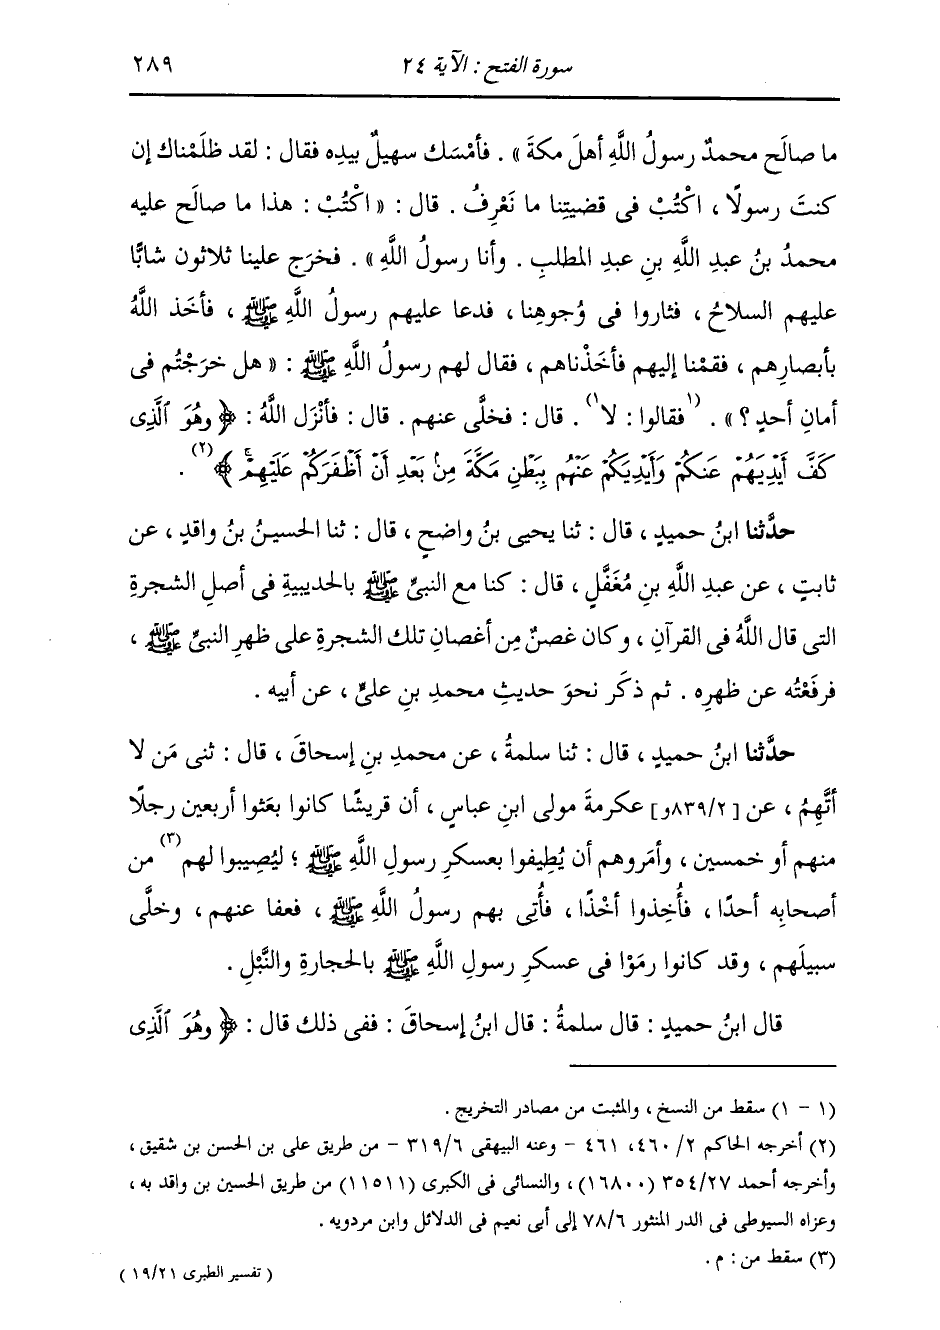 سورة الفتح : الآية ٢٤ ٢٨٩
ما صالَح محمدٌ رسولُ اللَّهِ أهلَ مكةَ » . فأمْسَك سهيلٌ بيدِه فقال : لقد ظلَمْناك إن
كنتَ رسولًا ، اكْتُبْ فى قضيتِنا ما نَعْرِفُ . قال : « اكْتُبْ : هذا ما صالَح عليه
محمدُ بنُ عبدِ اللَّهِ بنِ عبدِ المطلبِ . وأنا رسولُ اللَّهِ » . فخرَج علينا ثلاثون شابًّا
عليهم السلاحُ ، فثاروا فى وُجوهِنا ، فدعا عليهم رسولُ اللَّهِ ﷺ ، فأخَذ اللَّهُ
بأبصارِهم ، فقمْنا إليهم فأخَذْناهم ، فقال لهم رسولُ اللَّهِ ﷺ : « هل خرَجْتُم فى
أمانِ أحدٍ ؟ » . (١فقالوا : لا١) . قال : فخلَّى عنهم . قال : فأنْزَل اللَّهُ : ﴿ وَهُوَ ٱلَّذِى
كَفَّ أَيْدِيَهُمْ عَنكُمْ وَأَيْدِيَكُمْ عَنْهُم بِبَطْنِ مَكَّةَ مِنۢ بَعْدِ أَنْ أَظْفَرَكُمْ عَلَيْهِمْۚ ﴾(٢) .
حدَّثنا ابنُ حميدٍ ، قال : ثنا يحيى بنُ واضحٍ ، قال : ثنا الحسينُ بنُ واقدٍ ، عن
ثابتٍ ، عن عبدِ اللَّهِ بنِ مُغَفَّلٍ ، قال : كنا مع النبىِّ ﷺ بالحديبيةِ فى أصلِ الشجرةِ
التى قال اللَّهُ فى القرآنِ ، وكان غصنٌ مِن أغصانِ تلك الشجرةِ على ظهرِ النبىِّ ﷺ ،
فرفَعْتُه عن ظهرِه . ثم ذكَر نحوَ حديثِ محمدِ بنِ علىٍّ ، عن أبيه .
حدَّثنا ابنُ حميدٍ ، قال : ثنا سلمةُ ، عن محمدِ بنِ إسحاقَ ، قال : ثنى مَن لا
أتَّهِمُ ، عن [٨٣٩/٢و] عكرمةَ مولى ابنِ عباسٍ ، أن قريشًا كانوا بعَثوا أربعين رجلًا
منهم أو خمسين ، وأمَروهم أن يُطِيفوا بعسكرِ رسولِ اللَّهِ ﷺ ؛ ليُصِيبوا لهم(٣) من
أصحابِه أحدًا ، فأُخِذوا أخْذًا ، فأُتِى بهم رسولُ اللَّهِ ﷺ ، فعفا عنهم ، وخلَّى
سبيلَهم ، وقد كانوا رمَوْا فى عسكرِ رسولِ اللَّهِ ﷺ بالحجارةِ والنَّبْلِ .
قال ابنُ حميدٍ : قال سلمةُ : قال ابنُ إسحاقَ : ففى ذلك قال : ﴿ وَهُوَ ٱلَّذِى
(١ - ١) سقط من النسخ ، والمثبت من مصادر التخريج .
(٢) أخرجه الحاكم ٢/ ٤٦٠، ٤٦١ - وعنه البيهقى ٣١٩/٦ - من طريق على بن الحسن بن شقيق ،
وأخرجه أحمد ٣٥٤/٢٧ (١٦٨٠٠)، والنسائى فى الكبرى (١١٥١١) من طريق الحسين بن واقد به ،
وعزاه السيوطى فى الدر المنثور ٧٨/٦ إلى أبى نعيم فى الدلائل وابن مردويه .
(٣) سقط من : م .
( تفسير الطبرى ١٩/٢١ )